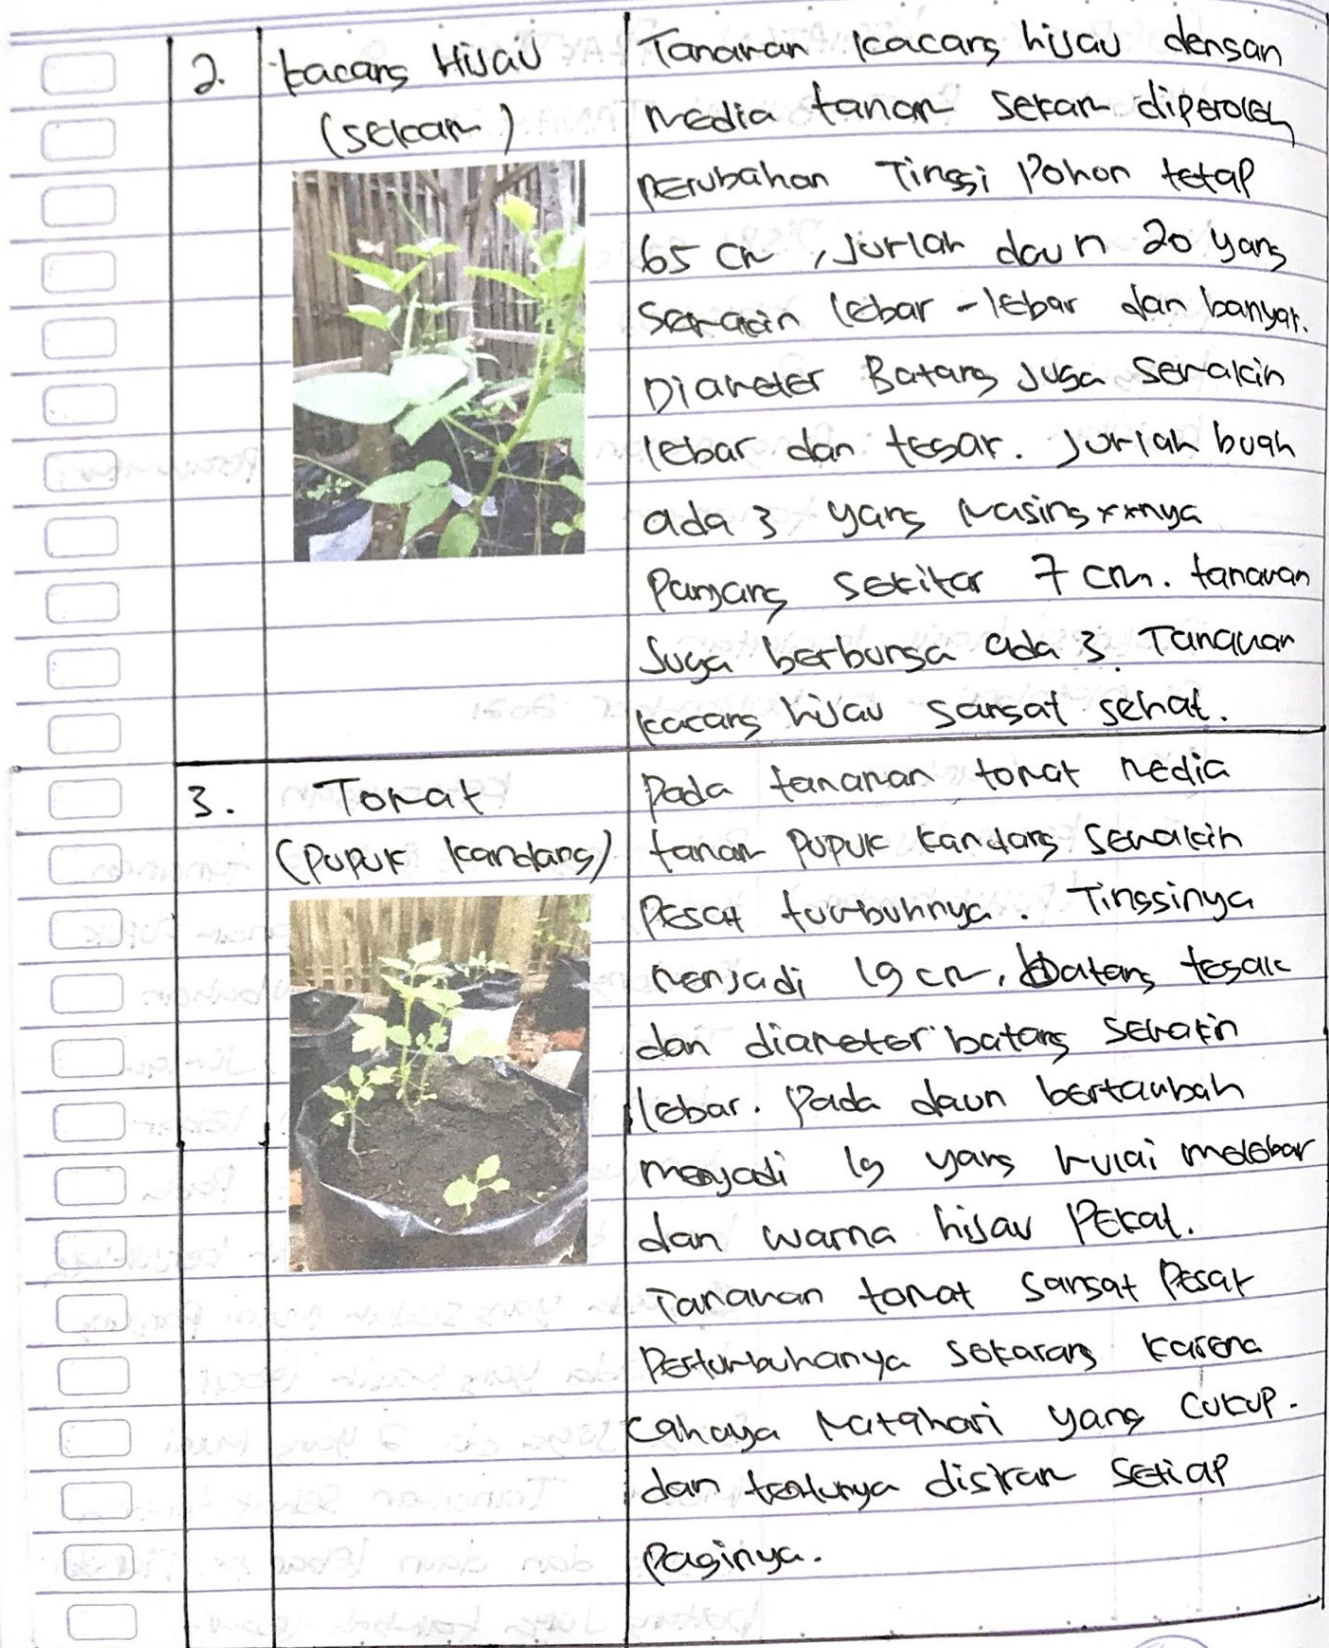 2.
Kacang Hijau
(sekam)
Tanaman kacang hijau dengan
media tanam sekam diperoleh
perubahan Tinggi Pohon tetap
65 cm, Jumlah daun 20 yang
semakin lebar-lebar dan banyak.
Diameter Batang Juga semakin
lebar dan tegar. Jumlah buah
ada 3 yang masing xxnya
Panjang sekitar 7 cm. tanaman
Juga berbunga ada 3. Tanaman
kacang hijau sangat sehat.
3.
Tomat
(Pupuk kandang)
Pada tanaman tomat media
tanam Pupuk kandang semakin
Pesat tumbuhnya. Tingginya
menjadi 19 cm, Batang tegak
dan diameter batang semakin
lebar. Pada daun bertambah
menjadi 19 yang mulai melebar
dan warna hijau Pekat.
Tanaman tomat sangat Pesat
Pertumbuhanya sekarang karena
cahaya Matahari yang cukup.
dan tentunya disiram setiap
Paginya.